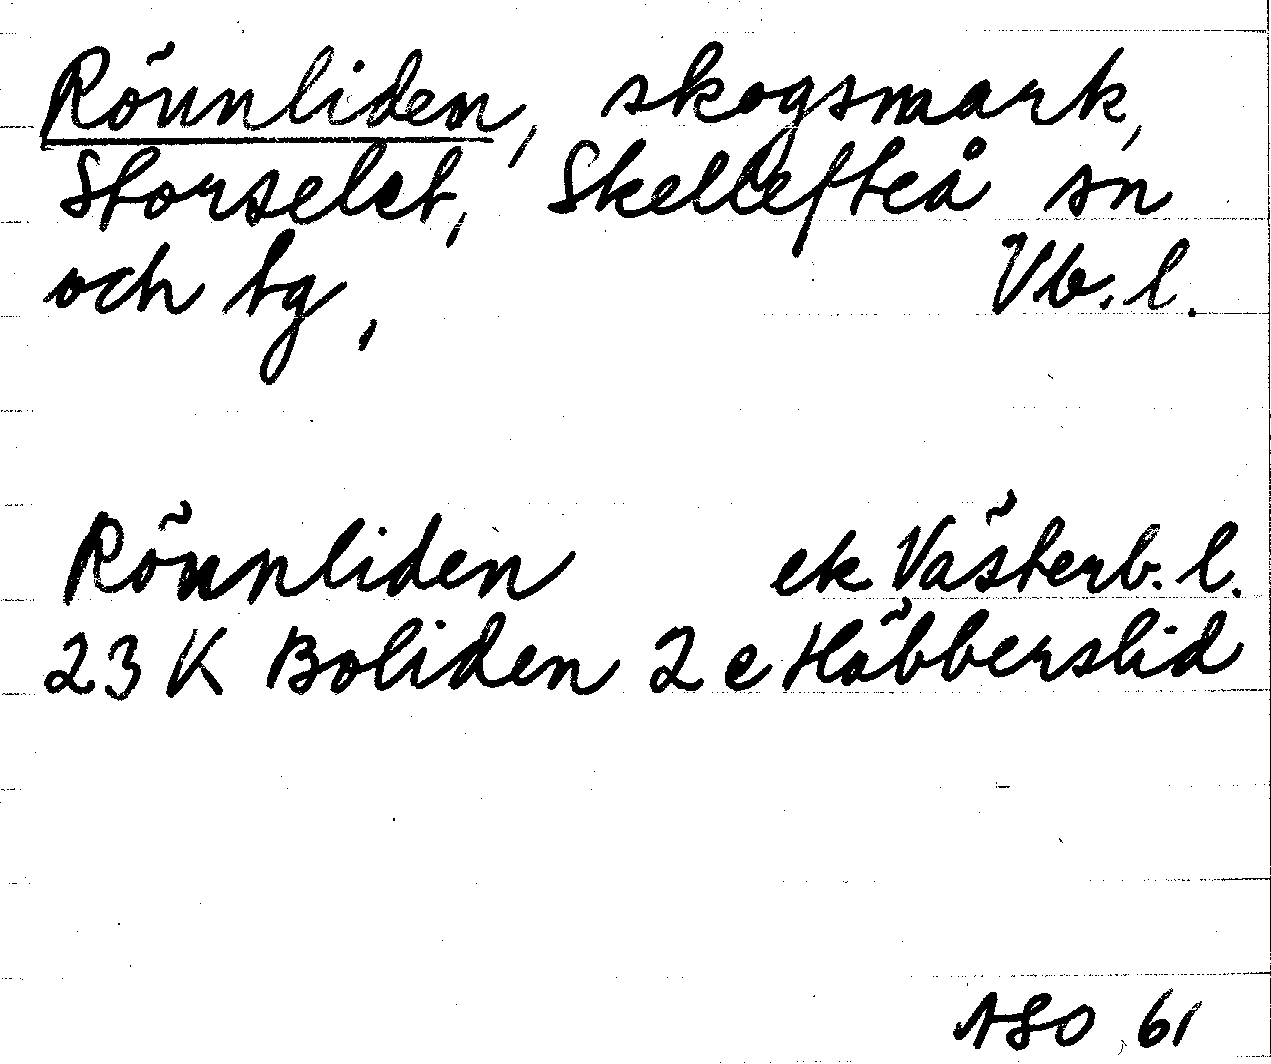 Rönnliden, skogsmark,
Storselet, Skellefteå sn
och tg, Vb. l.
Rönnliden ek Västerb. l.
23 K Boliden 2 e Häbberslid
ASO 61